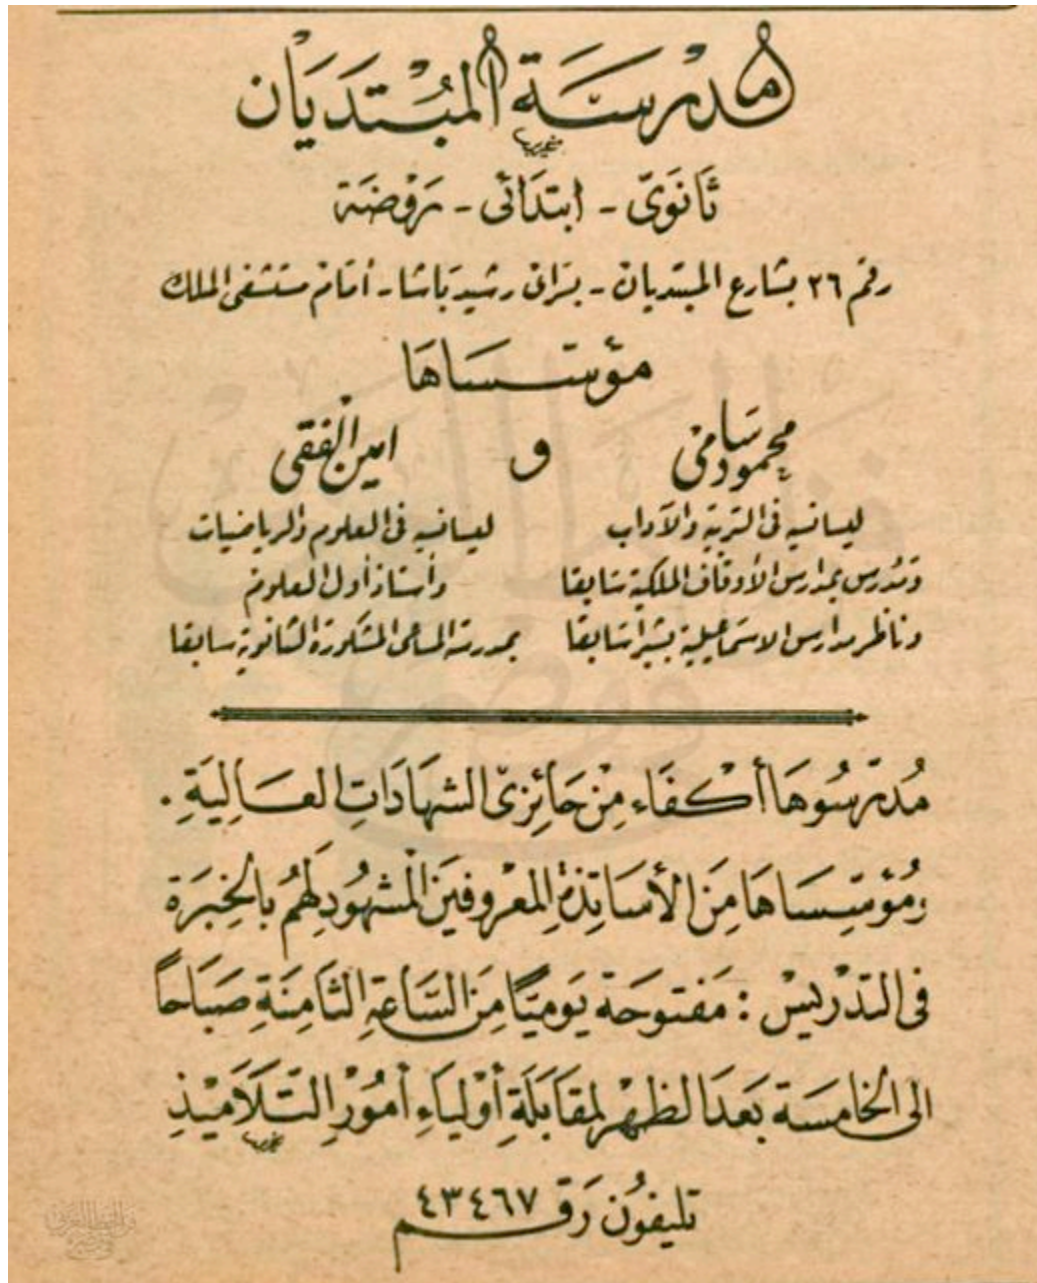 مدرسة المبتديان
ثانوي - ابتدائي - روضة
رقم ٢٦ بشارع المبتديان - بسراي رشيد باشا - أمام مستشفى الملك
مؤسساها
محمود سامي و امين الفقي
ليسانسيه في التربية والآداب
ومدرس بمدارس الأوقاف الملكية سابقا
وناظر مدارس الاسماعيلية بشبرا سابقا
ليسانسيه في العلوم والرياضيات
وأستاذ أول العلوم
بمدرسة المساعي المشكورة الثانوية سابقا
مُدرّسُوهَا أكْفَاء مِنْ حَائِزي الشهَادَاتِ العَالِيَةِ .
ومُؤسِسَاهَا مِنَ الأسَاتِذةِ المعْروفينَ المشْهُودِ لَهُمْ بالخِبرَة
في التدْريسْ : مَفتوحَة يَوميًا مِنَ السَّاعَةِ الثَامِنَةِ صَبَاحاً
الى الخامسَة بَعدَ الظهْر لمقَابَلَةِ أوْليَاءِ أمُوْرِ التّلَاَميْذِ
تليفُون رَقم ٤٣٤٦٧